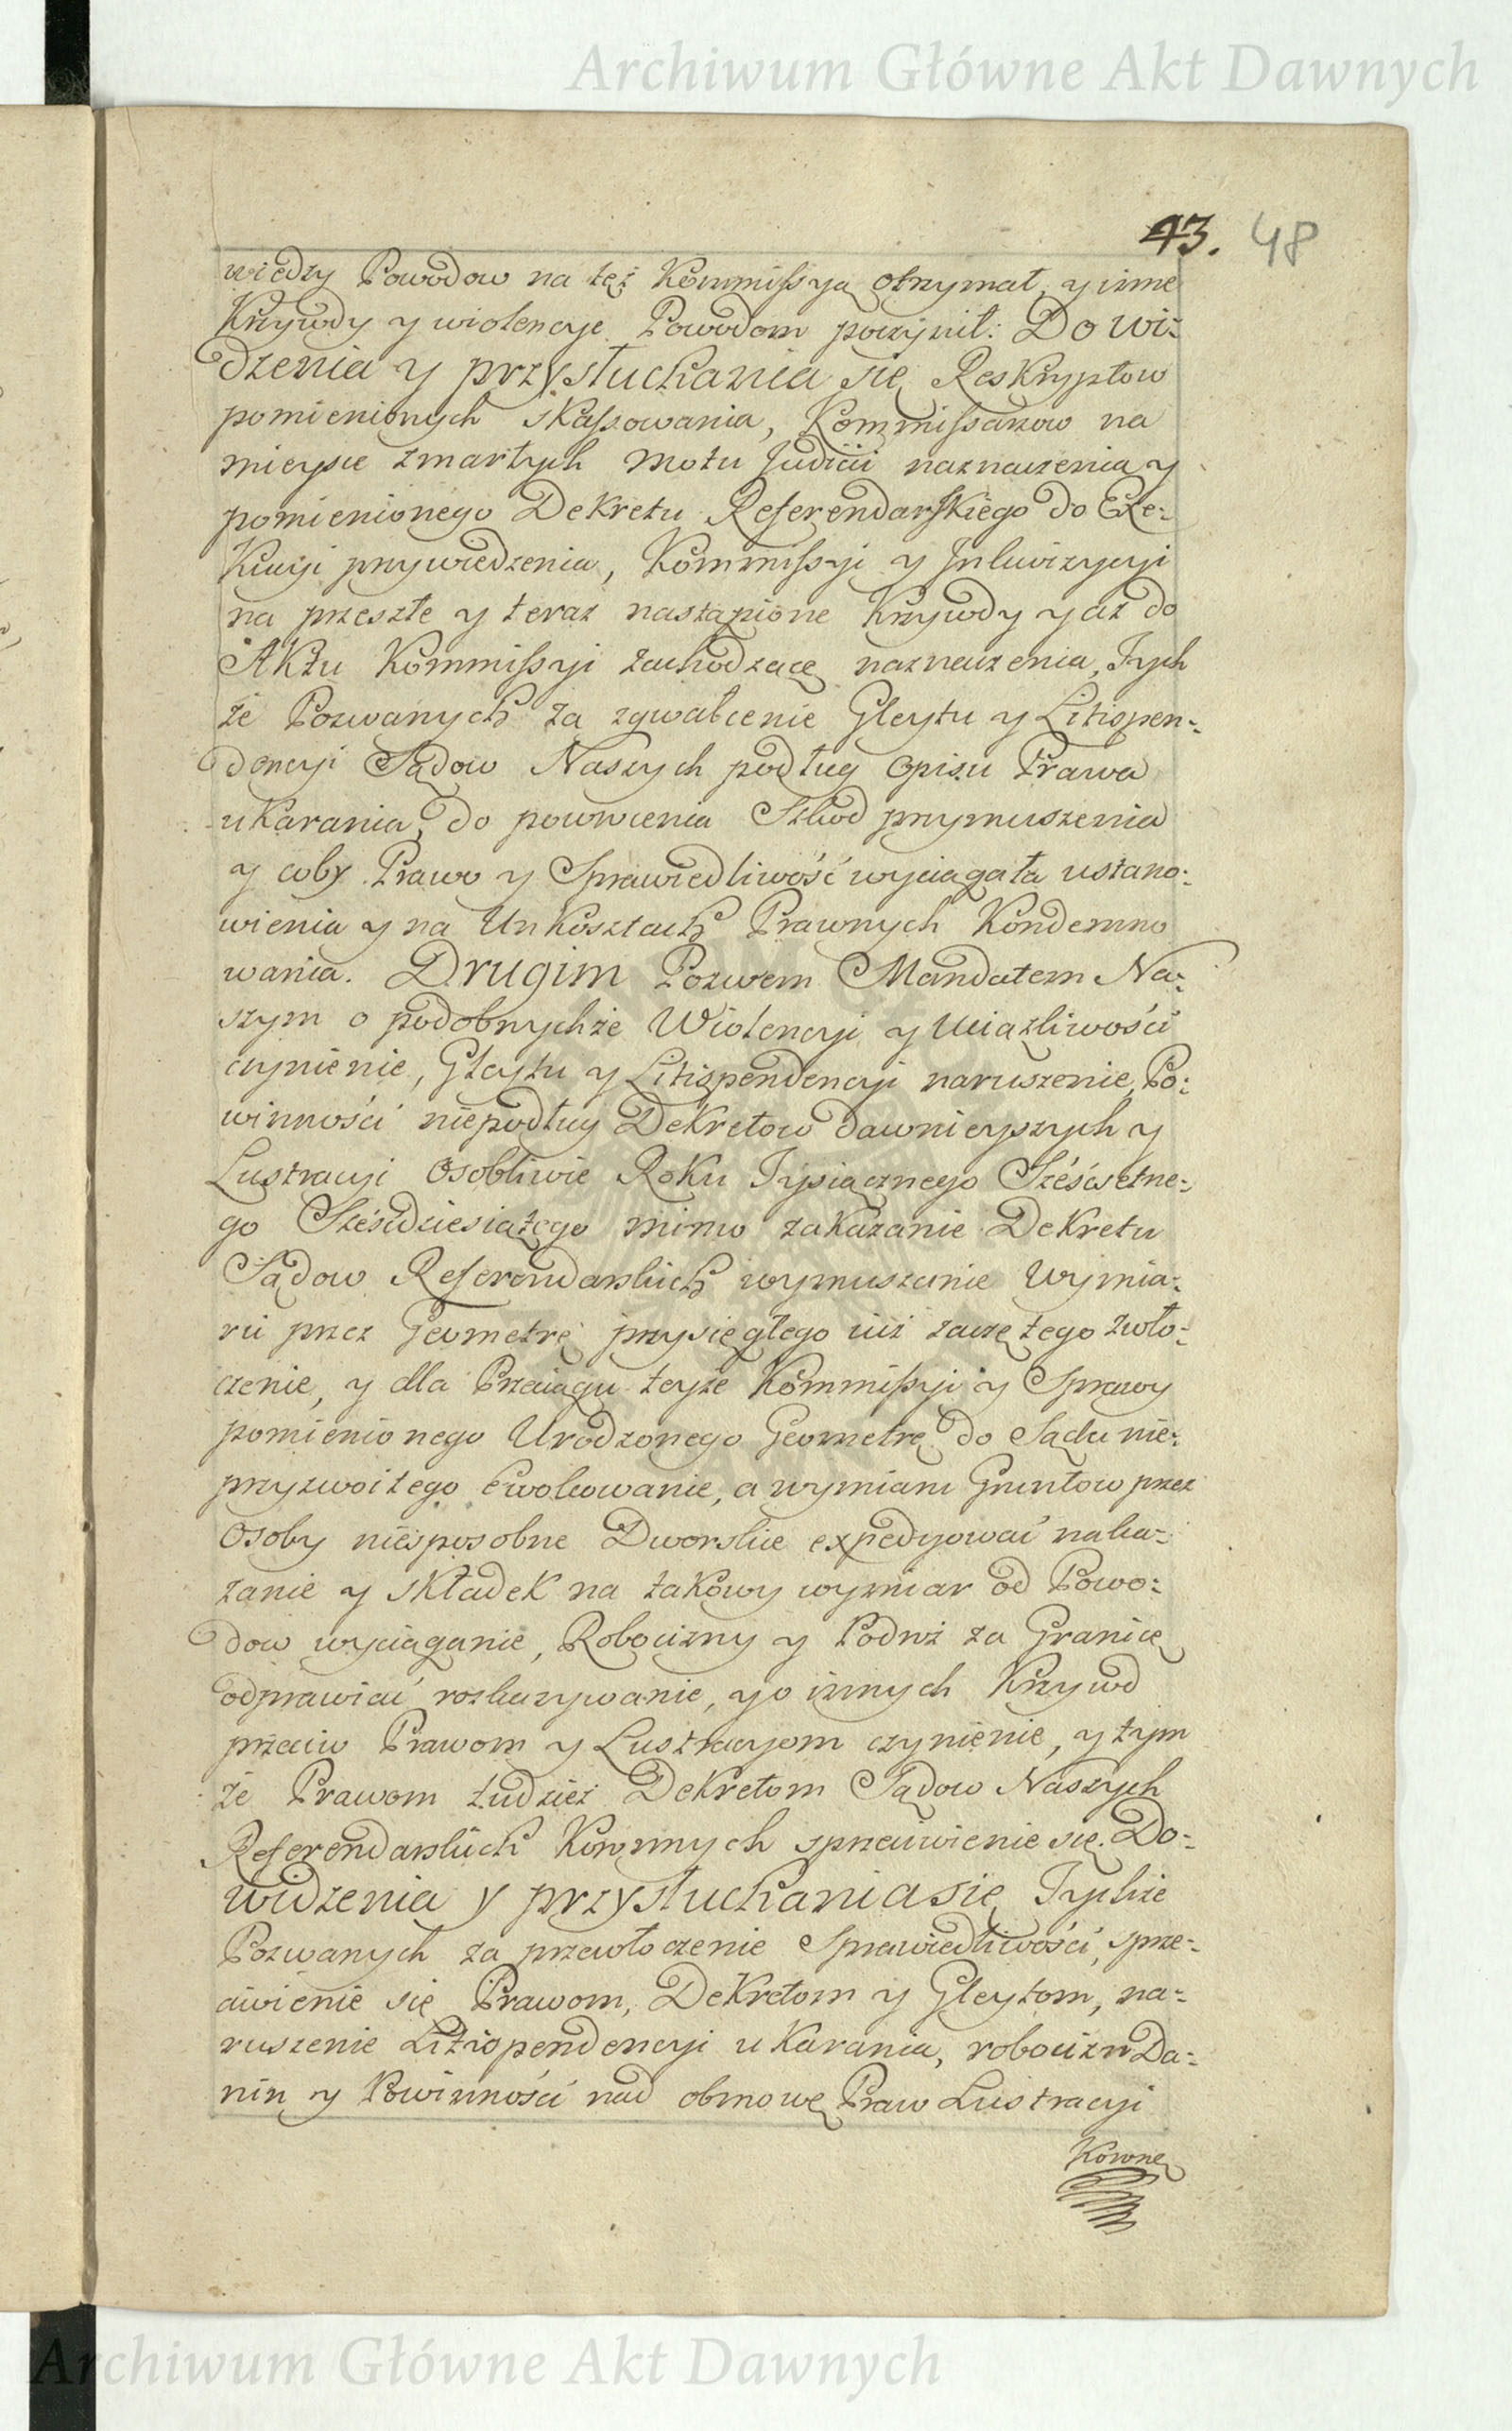 Archiwum Główne Akt Dawnych
43. 48
wiedzy Powodow na tęż Kommissyą otrzymał, y inne
Krzywdy y wiolencye Powodom poczynił: Do wi-
dzenia y przysłuchania się Reskryptow
pomienionych skassowania, Kommissarzow na
mieysce zmarłych motu Judicii naznaczenia y
pomienionego Dekretu Referendarskiego do Exe-
Kucyi przywiedzenia, Kommissyi y Inkwizycyi
na przeszłe y teraz nastąpione Krzywdy y aż do
Aktu Kommissyi zachodzącę naznaczenia, Tych
że Pozwanych za zgwałcenie Gleytu y Litispen-
dencyi Sądow Naszych podług opisu Prawa
ukarania, do powrocenia Szkod przymuszenia
y coby Prawo y Sprawiedliwość wyciągała ustano-
wienia y na Unkosztach Prawnych Kondemno
wania. Drugim Pozwem Mandatem Na-
szym o podobnychże Wiolencyi y Uciążliwości
czynienie, Gleytu y Litispendencyi naruszenie, Po-
winności niepodług Dekretow dawnieyszych y
Lustracyi osobliwie Roku Tysiącznego Sześćsetne-
go Sześćdziesiątego mimo zakazanie Dekretu
Sądow Referendarskich wymuszanie Wymia-
ru przez Geometrę przysięgłego iuż zaczętego zwło-
czenie, y dla Przeciągu teyże Kommissyi y Sprawy
pomienionego Urodzonego Geometrę do Sądu nie-
przyzwoitego Ewokowanie, a wymiaru Gruntow przez
Osoby niesposobne Dworskie expedyować naka-
zanie y składek na takowy wymiar od Powo-
dow wyciąganie, Robocizny y Podwoż za Granicę
odprawiać rozkazywanie, y o innych Krzywd
przeciw Prawom y Lustracyom czynienie, y tym
że Prawom tudzież Dekretom Sądow Naszych
Referendarskich Koronnych sprzeciwienie się. Do-
widzenia y przysłuchania się Tychże
Pozwanych za przewłoczenie Sprawiedliwości, sprze-
ciwienie się Prawom, Dekretom y Gleytom, na-
ruszenie Litispendencyi ukarania, robocizn Da-
nin y Powinności nad obmowę Praw Lustracyi
Archiwum Główne Akt Dawnych